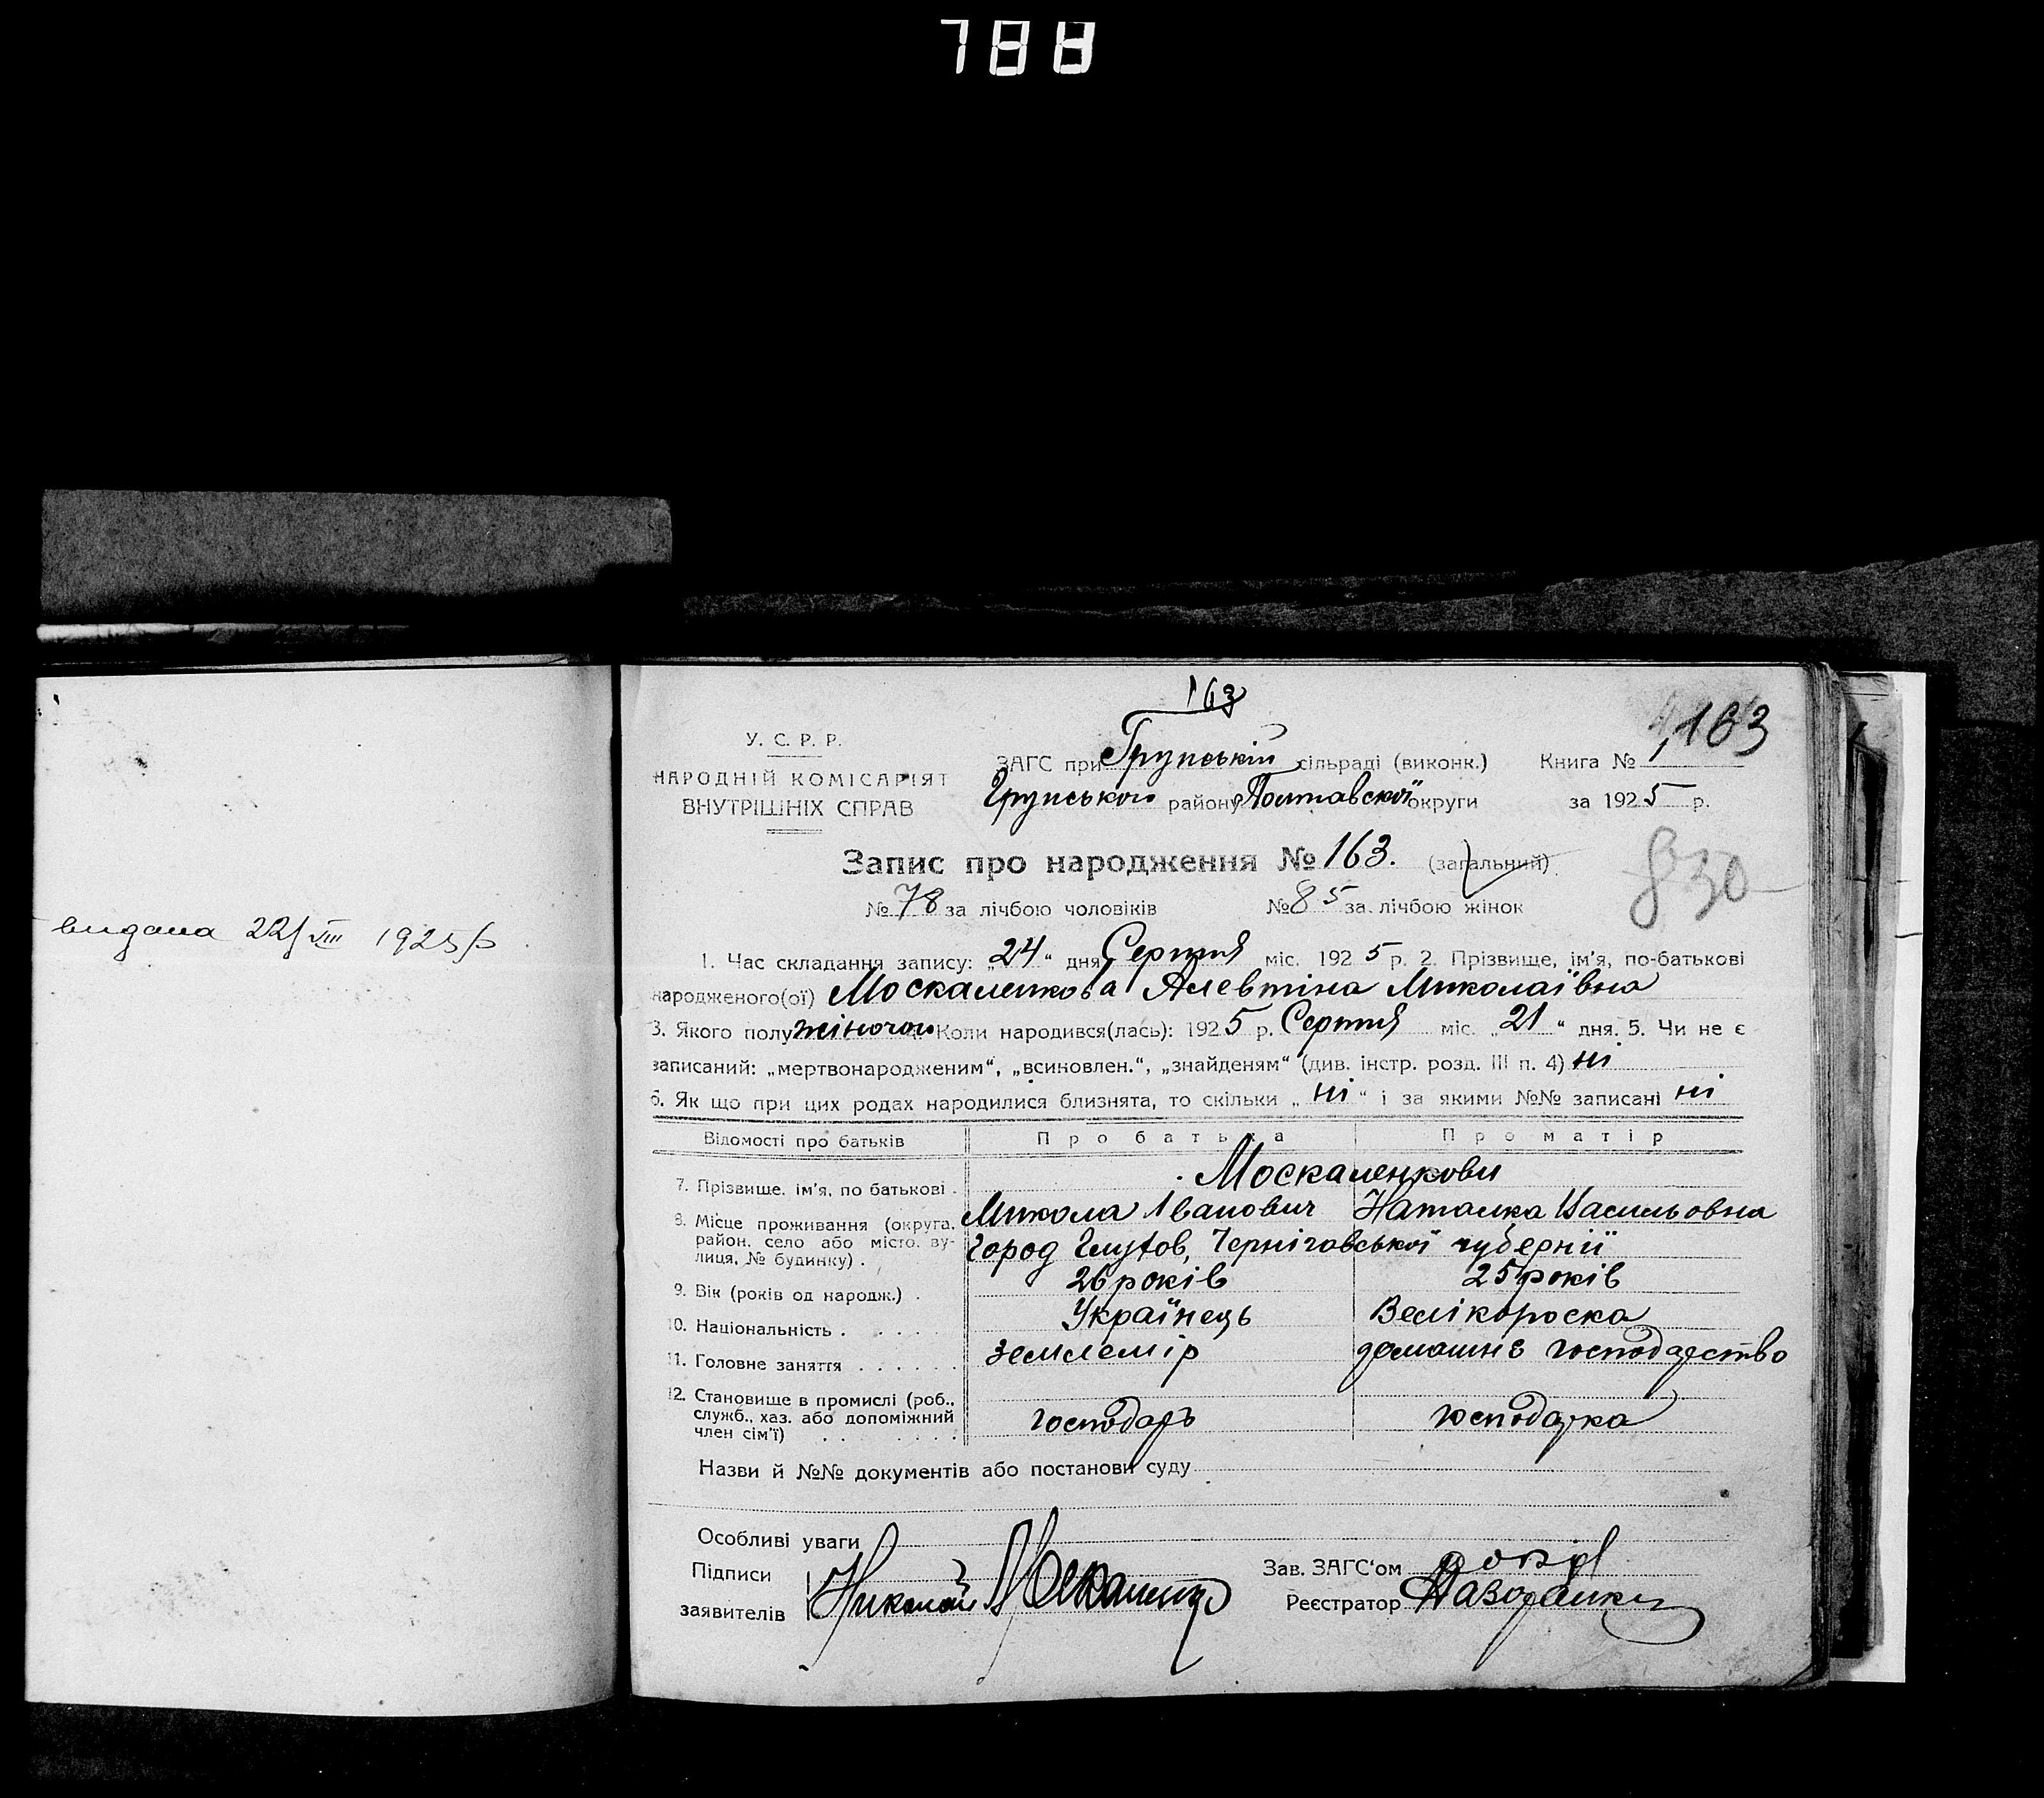 788
видана 22/VIII 1925 р
163
163
У. С. Р. Р.
НАРОДНІЙ КОМІСАРІЯТ
ВНУТРІШНІХ СПРАВ
ЗАГС при Грунській сільраді (виконк.) Книга № 1
Грунського району Полтавської округи за 1925 р.
Запис про народження № 163. (загальний)
830
№ 78 за лічбою чоловіків № 85 за лічбою жінок
1. Час складання запису: „24“ дня Серпня міс. 1925 р. 2. Прізвище, ім'я, по-батькові
народженого(ої) Москаленкова Алевтіна Миколаївна
3. Якого полу жіночого Коли народився(лась): 1925 р. Серпня міс. „21“ дня. 5. Чи не є
записаний: „мертвонародженим“, „всиновлен.“, „знайденям“ (див. інстр. розд. III п. 4) ні
6. Як що при цих родах народилися близнята, то скільки „ні“ і за якими №№ записані ні
Відомості про батьків Про батька Про матір
Москаленкови
7. Прізвище, ім'я, по батькові . Микола Іванович Наталка Васильовна
8. Місце проживання (округа, район, село або місто, вулиця, № будинку) . город Глухов, Черніговської губернії
9. Вік (років од народж.) . 26 років 25 років
10. Національність . . . . . Українець Велікороска
11. Головне заняття . . . . . . землемір домашнє господарство
12. Становище в промислі (роб.,
служб., хаз. або допоміжний
член сім'ї) . . . . . . . господарь господарка
Назви й №№ документів або постанови суду
Особливі уваги
Підписи
заявителів Николай Москаленко
Зав. ЗАГС'ом
Реєстратор